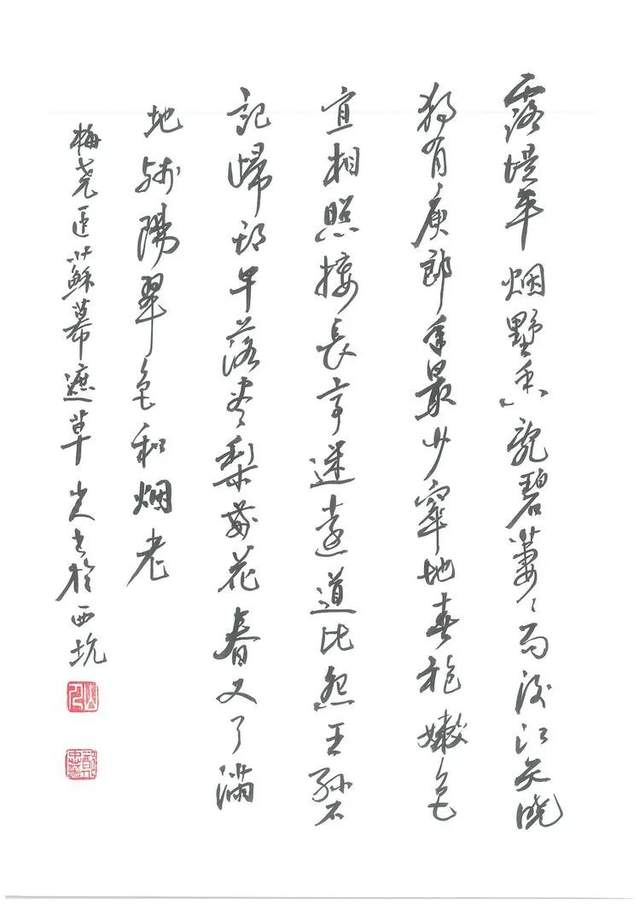 露堤平烟墅杳亂碧萋〻雨後江天晓
独有庾郎年最少窣地春袍嫩色
宜相照接長亭迷遠道比怨王孫不
記歸期早落尽梨花春又了滿
地残陽翠色和烟老
梅尧臣蘇幕遮草书於西坑